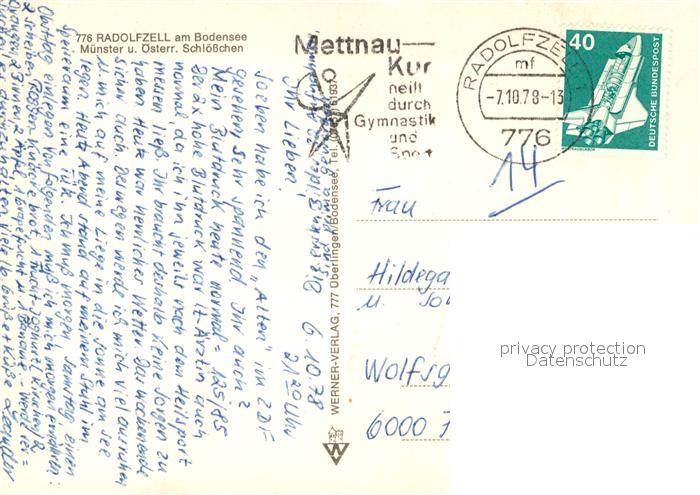 776 RADOLFZELL am Bodensee
Münster u. Österr. Schlößchen
Mettnau—
Kur
heilt
durch
Gymnastik
und
Sport
RADOLFZELL
mf
-7.10.78-13
776
40
DEUTSCHE BUNDESPOST
14
Frau
Hildega
u.
Wolfsg
6000
privacy protection
Datenschutz
WERNER-VERLAG, 777 Überlingen/Bodensee, Tel.
W
6.10.78
21 20 Uhr
Ihr Lieben!
Soeben habe ich den „Alten" im ZDF
gesehen. Sehr spannend. Ihr auch?
Mein Blutdruck heute normal = 125/85
Der zu hohe Blutdruck war lt. Ärztin auch
normal, da ich ihn jeweils nach dem Heilsport
messen ließ. Ihr braucht deshalb keine Sorgen zu
haben. Heute war herrliches Wetter. Das Wochenende
schön auch. Deswegen werde ich mich viel ausruhen
u. mich auf meine Liege in die Sonne am See
legen. Heute stand auf meinem Stuhl im
Speiseraum eine Tüte. Ich muß morgen, Samstag, einen
Obsttag einlegen. Von folgendem muß ich mich morgen ernähren:
2 Scheiben Knäckebrot, 1 Frucht Joghurt (Kirschen), 2
2 Äpfel, 1 Grapefruit u. 1 Banane. Werd ich
aushalten. Viele liebe Grüße + Küsse